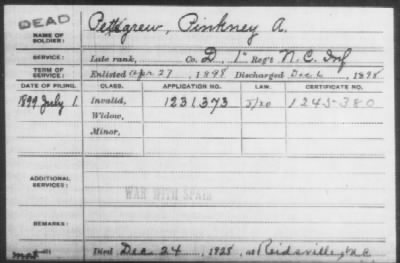 DEAD
NAME OF SOLDIER: Pettigrew, Pinkney A.
SERVICE: Late rank, Co. D, 1st Reg't N.C. Inf
TERM OF SERVICE: Enlisted Apr 27, 1898 Discharged Dec 6, 1898
DATE OF FILING. CLASS. APPLICATION NO. LAW. CERTIFICATE NO.
1899 July 1. Invalid, 1231373 1245380
Widow,
Minor,
ADDITIONAL SERVICES:
WAR WITH SPAIN
REMARKS:
Died Dec. 24, 1928, at Reidsville, N.C.